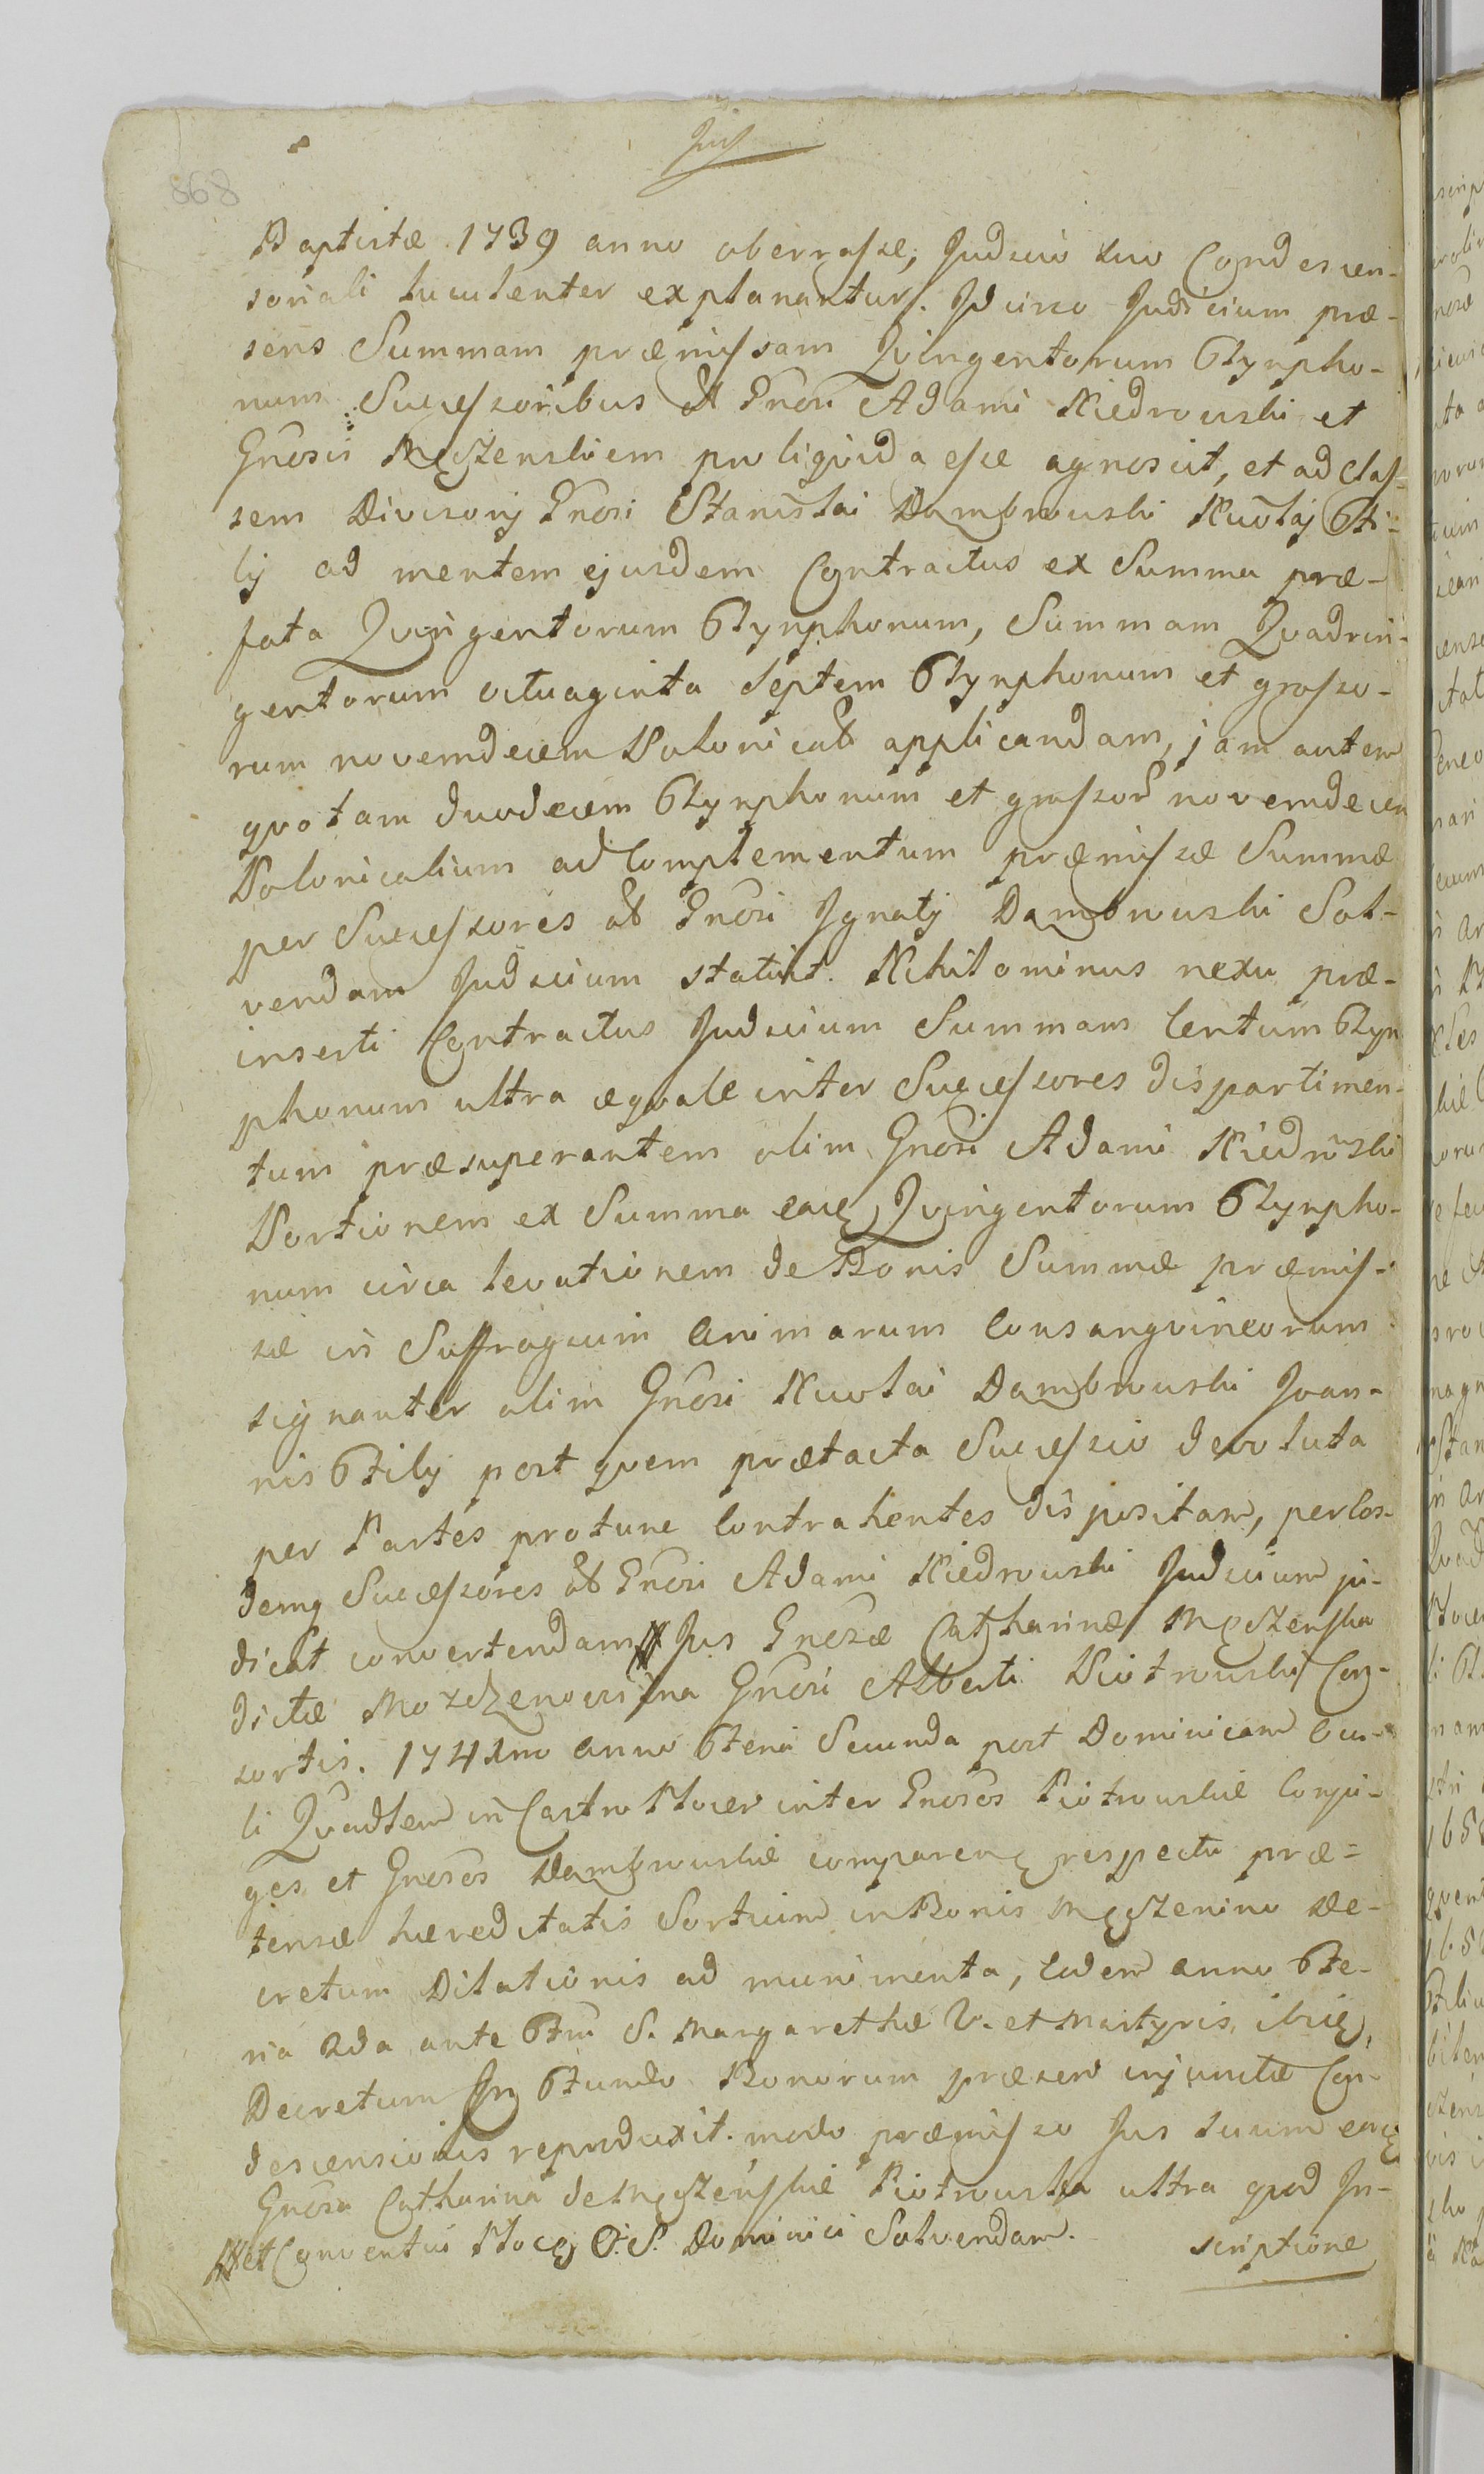 868
Baptistæ 1739 anno oberrasse, Judicio suo Condescen-
soriali luculenter explanantur. Idcirco Judicium præ-
sens Summam præmissam Qvingentorum Tÿnpho-
num Successoribus olim Gnosi Adami Niedrowski et
Gnosis Męszenskiem pro liqvida esse agnoscit, et ad Clas-
sem Divisorij Gnosi Stanislai Dambrowski Nicolaj Fi-
lij ad mentem ejusdem Contractus ex Summa præ-
fata Qvingentorum Tynphonum, Summam Qvadrin-
gentorum octuaginta Septem Tynphonum et grosso-
rum novemdecem Polonical applicandam, jam autem
qvotam duodecem Tynphonum et grossor novemdecem
Polonicalium ad Complementum præmissæ Summæ
per Successores ol Gnosi Ignatij Dambrowski Sol-
vendam Judicium statuit. Nihilominus nexu præ-
inserti Contractus Judicium Summam Centum Tyn
phonum ultra æqvale inter Successores dispartimen-
tum præsuperantem olim Gnosi Adami Niedrowski
Portionem ex Summa eaq Qvingentorum Tynpho-
num circa levationem de Bonis Summæ præmis-
sæ in Suffragium Animarum Consangvineorum
signanter olim Gnosi Nicolai Dambrowski Joan-
nis Filij post qvem prætacta Successio devoluta
per Partes protunc Contrahentes dispositam, per Eos-
demq Successores ol Gnosi Adami Niedrowski Judicium ju-
dicat convertendam # Jus Gnosæ Catharinæ Męszenska
dictæ Gnosi Alberti Piotrowski Con-
sortis. 1741mo Anno Feria Secunda post Dominicam Ocu-
li Qvadlem in Castro Plocen inter Gnosos Piotrowskie Conju-
ges et Gnosos Dambrowskie comparen respectu præ-
tensæ hæreditatis Sortium in Bonis Męszenino De-
cretum Dilationis ad munimenta, Eodem Anno Fe-
ria 2da ante Ftm S. Margarethæ V. et Martyris, ibiq,
Decretum In Fundo Bonorum præsen injunctæ Con-
descensionis reproduxit. modo præmisso Jus suum eaq
Gnosa Catharina de Męszenskie Piotrowska ultra qvod In-
# et Conventui Plocen O. S. Dominici Solvendam.
scriptione